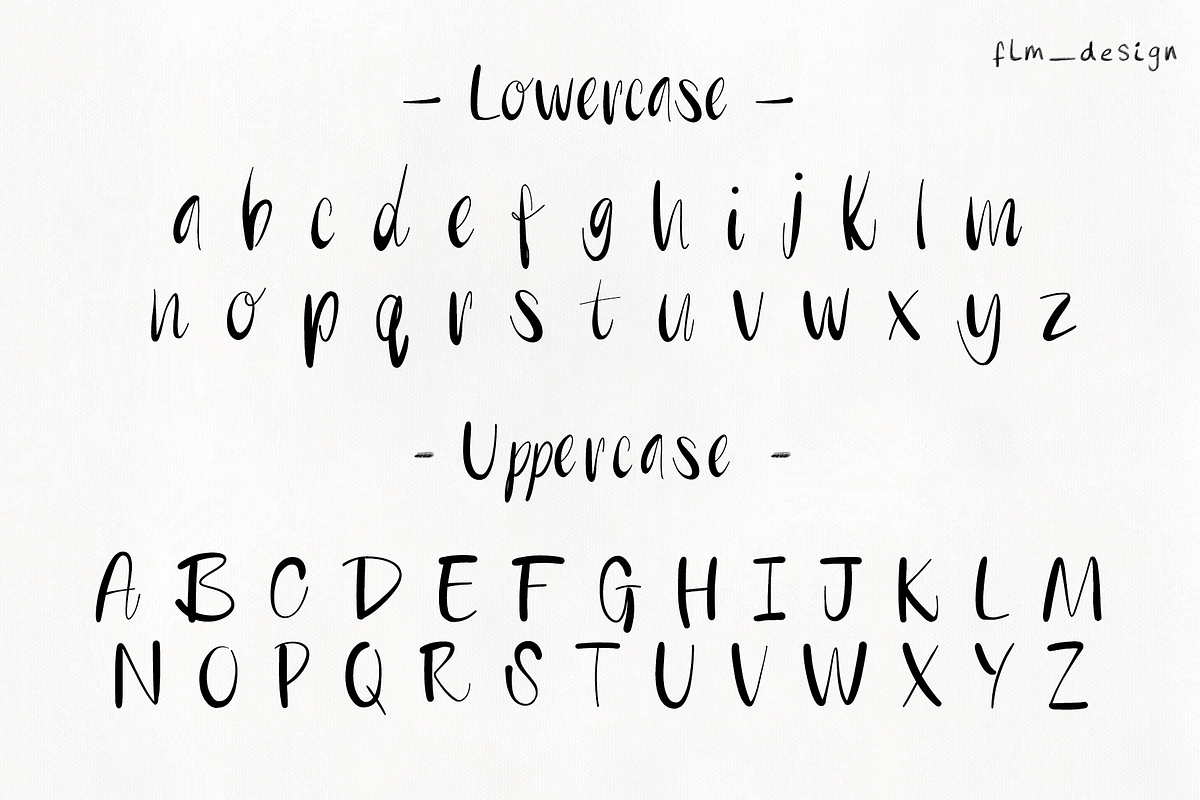 flm_design
- Lowercase -
a b c d e f g h i j k l m
n o p q r s t u v w x y z
- Uppercase -
A B C D E F G H I J K L M
N O P Q R S T U V W X Y Z